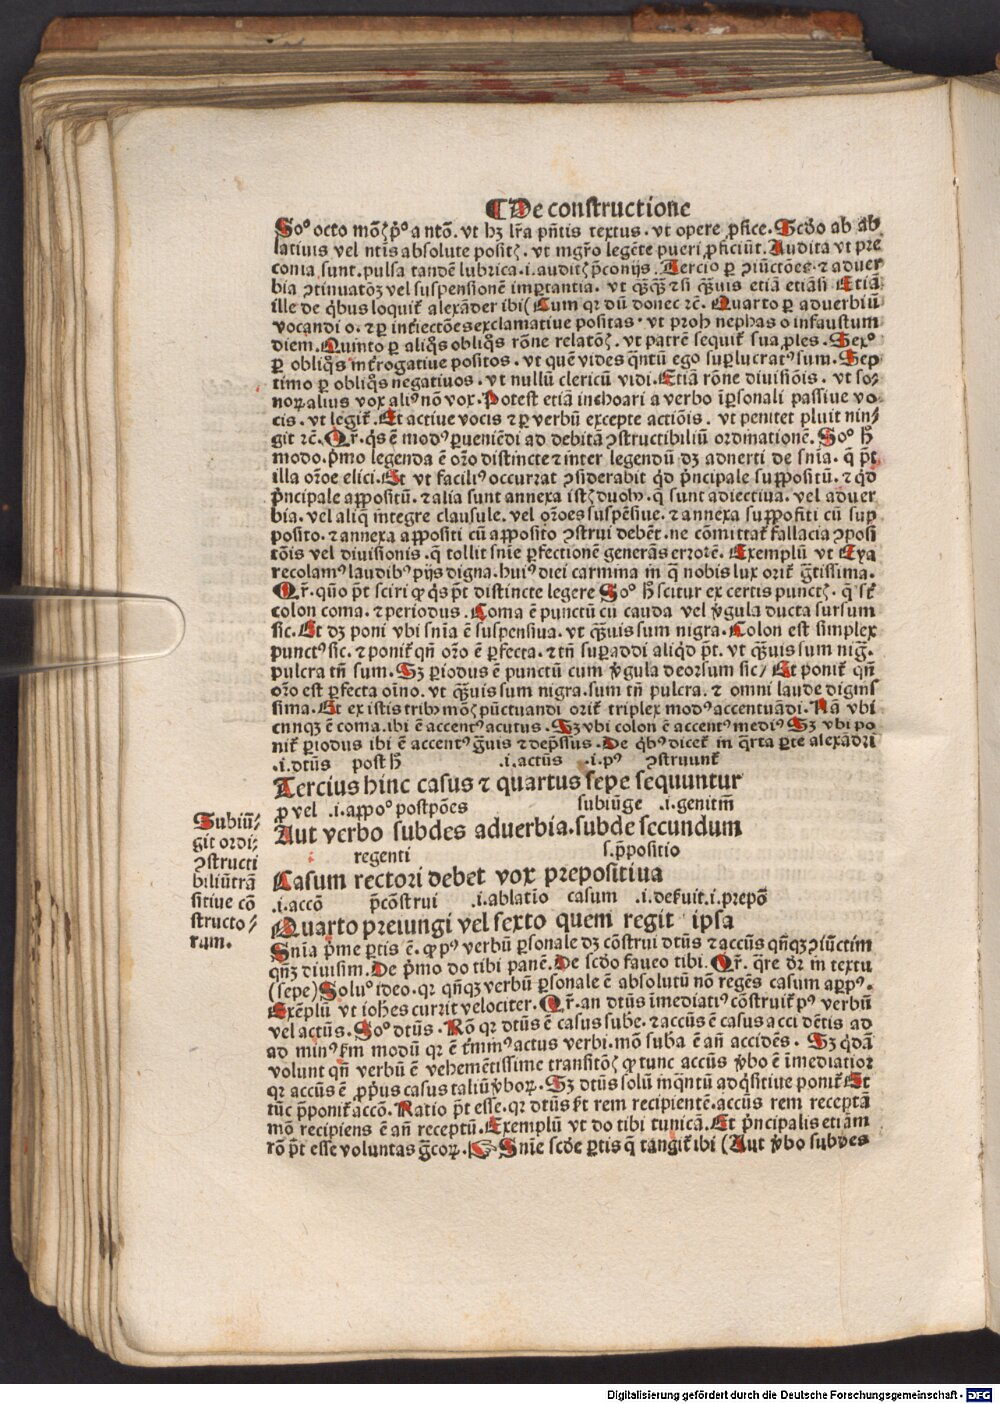 De constructione
So⁹ octo mōꝫ p̊⁹ a ntō. vt hꝫ lr̄a pn̄tis textus. vt opere ꝓfice. Scd̓o ab ab
latiuis vel ntīs absolute positꝫ. vt mgr̄o legēte pueri ꝓficiūt. Audita vt pre
conia sunt. pulsa tandē lubrica .i. auditꝫ p̄conijs. Tercio ꝑ ↄiūctōes. ⁊ aduer
bia ↄtinuatōꝫ vel suspensionē importantia. vt q̄ꝫq̄ꝫ ⁊ si q̄ꝫuis etiā etiāsi Etiā
ille de q̊bus loquit᷑ alexāder ibi (Cum qr dū donec ꝛc. Quarto ꝑ aduerbiū
vocandi o. ⁊ ꝑ int̓iectōes exclamatiue positas. vt proh nephas o infaustum
diem. Quinto ꝑ aliq̊s obliq̊s rōne relatōꝫ. vt patrē sequit᷑ sua ꝓles. Sex⁹
ꝑ obliq̊s int̓rogatiue positos. vt quē vides q̄ntū ego suꝑlucrat⁹ sum. Sep
timo ꝑ obliq̊s negatiuos. vt nullū clericū vidi. Etiā rōne diuisiōis. vt so⸗
noꝝ alius vox ali⁹ nō vox. Potest etiā inchoari a verbo īꝑsonali passiue vo
cis. vt legit᷑. Et actiue vocis ⁊ ꝑ verbū excepte actiōis. vt penitet pluit nin⸗
git ꝛc. Qr̄. q̊s ē mod⁹ ꝑueniēdi ad debitā ↄstructibiliū ordinationē. So⁹ h̄
modo. p̊mo legenda ē or̄o distincte ⁊ inter legendū dꝫ aduerti de snīa. q̄ p̄t
illa or̄oe elici. Et vt facili⁹ occurrat ↄsiderabit q̊d p̊ncipale suꝓpositū. ⁊ q̊d
p̊ncipale apꝓpositū. ⁊ alia sunt annexa istꝫ duob⁹. q̄ sunt adiectiua. vel aduer
bia. vel aliq̄ integre clausule. vel or̄oes suspēsiue. ⁊ annexa suꝓpositi cū sup
posito. ⁊ annexa appositi cū apposito ↄstrui debēt. ne cōmittat᷑ fallacia ↄposi
tōis vel diuisionis. q̄ tollit snīe ꝑfectionē generās errorē. Exemplū vt Eya
recolam⁹ laudib⁹ pijs digna. hui⁹ diei carmina in q̄ nobis lux orit᷑ gr̄tissima.
Qr̄. quō p̄t sciri ꝙ q̊s p̄t distincte legere So⁹ h̄ scitur ex certis punctꝫ. q̄ st̄
colon coma. ⁊ periodus. Coma ē punctū cū cauda vel v̓gula ducta sursum
sic. Et dꝫ poni vbi snīa ē suspensiua. vt q̄ꝫuis sum nigra. Colon est simplex
punct⁹ sic. ⁊ ponit᷑ qn̄ or̄o ē ꝑfecta. ⁊ tn̄ suꝑaddi aliq̊d p̄t. vt q̄ꝫuis sum nigr̄.
pulcra tn̄ sum. Sꝫ ꝑiodus ē punctū cum v̓gula deorsum sic/ Et ponit᷑ qn̄
or̄o est ꝑfecta oīno. vt q̄ꝫuis sum nigra. sum tn̄ pulcra. ⁊ omni laude dignis
sima. Et ex istis trib⁹ mōꝫ pūctuandi orit᷑ triplex mod⁹ accentuādi. Nā vbi
cunqꝫ ē coma. ibi ē accent⁹ acutus. Sꝫ vbi colon ē accent⁹ medi⁹ Sꝫ vbi po
nit᷑ ꝑiodus ibi ē accent⁹ gr̄uis ⁊ dep̄ssus. De q̊b⁹ dicet᷑ in q̄rta ꝑte alexādri
.i. dtūs post h̄ .i. actūs .i. p⁹ ↄstruunt᷑
Tercius hinc casus ⁊ quartus sepe sequuntur
ꝓ vel .i. appo⁹ postpōes subiūge .i. genitm̄
Aut verbo subdes aduerbia. subde secundum
regenti s. p̄positio
Casum rectori debet vox prepositiua
.i. accō p̄cōstrui .i. ablatio casum .i. defuit .i. prepō
Quarto preiungi vel sexto quem regit ipsa
Subiū⸗
git ordi⸗
ↄstructi
biliū trā
sitiue cō
structo⸗
rum.
Snīa p̊me ꝑtis ē. ꝙ p⁹ verbū ꝑsonale dꝫ cōstrui dtūs ⁊ accūs qn̄qꝫ ↄiūctim
qn̄qꝫ diuisim. De p̊mo do tibi panē. De scd̓o faueo tibi. Qr̄. q̄re dr̄ in textu
(sepe) Solu⁹ ideo. qr qn̄qꝫ verbū ꝑsonale ē absolutū nō regēs casum a ꝑp⁹.
Exēplū vt ioh̄es currit velociter. Qr̄. an dtūs īmediati⁹ cōstruit᷑ p⁹ verbū
vel actūs. So⁹ dtūs. Rō qr dtūs ē casus sube. ⁊ accūs ē casus accidētis ad
ad min⁹ ẜm modū qr ē t̓min⁹ actus verbi. mō suba ē an̄ accidēs. Sꝫ q̊dā
volunt qn̄ verbū ē vehemētissime transitōꝫ ꝙ tunc accūs v̓bo ē īmediatior
qr accūs ē ꝓp̊us casus taliū v̓boꝝ. Sꝫ dtūs solū inq̄ntū adq̊sitiue ponit᷑ Et
tūc p̄ponit᷑ accō. Ratio p̄t esse. qr dtūs fert rem recipientē. accūs rem receptā
mō recipiens ē an̄ receptū. Exemplū vt do tibi tunicā. Et p̊ncipalis etiām
rō p̄t esse voluntas gr̄coꝝ. ☞ Snīe scd̓e ꝑtis q̄ tangit᷑ ibi (Aut v̓bo subdes
Digitalisierung gefördert durch die Deutsche Forschungsgemeinschaft - DFG